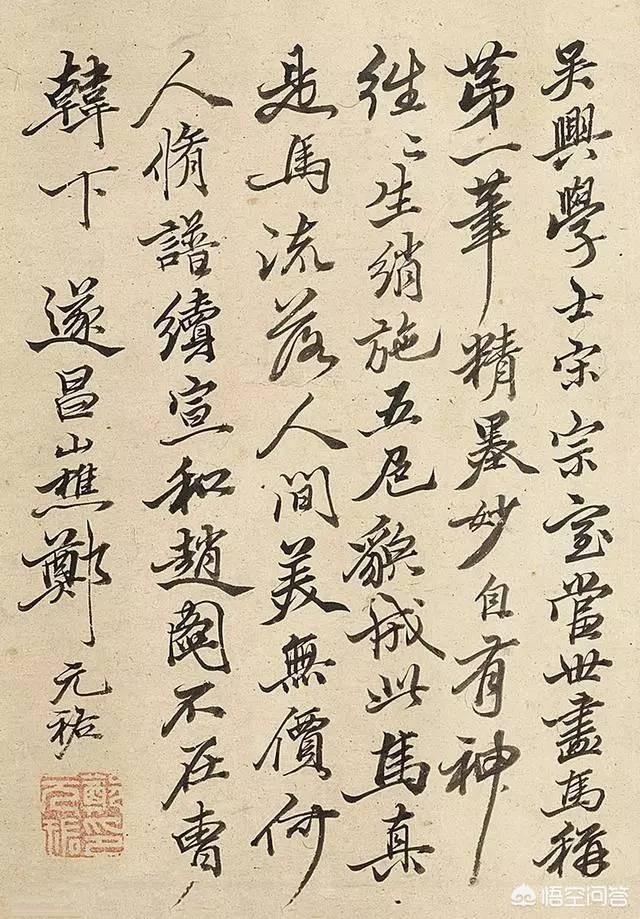 吳興學士宋宗室當世畫馬稱
第一筆精墨妙自有神
往〻生綃施五色貌成此馬真
是馬流落人間美無價何
人脩譜續宣和趙圖不在曹
韓下 遂昌山樵鄭元祐
悟空问答